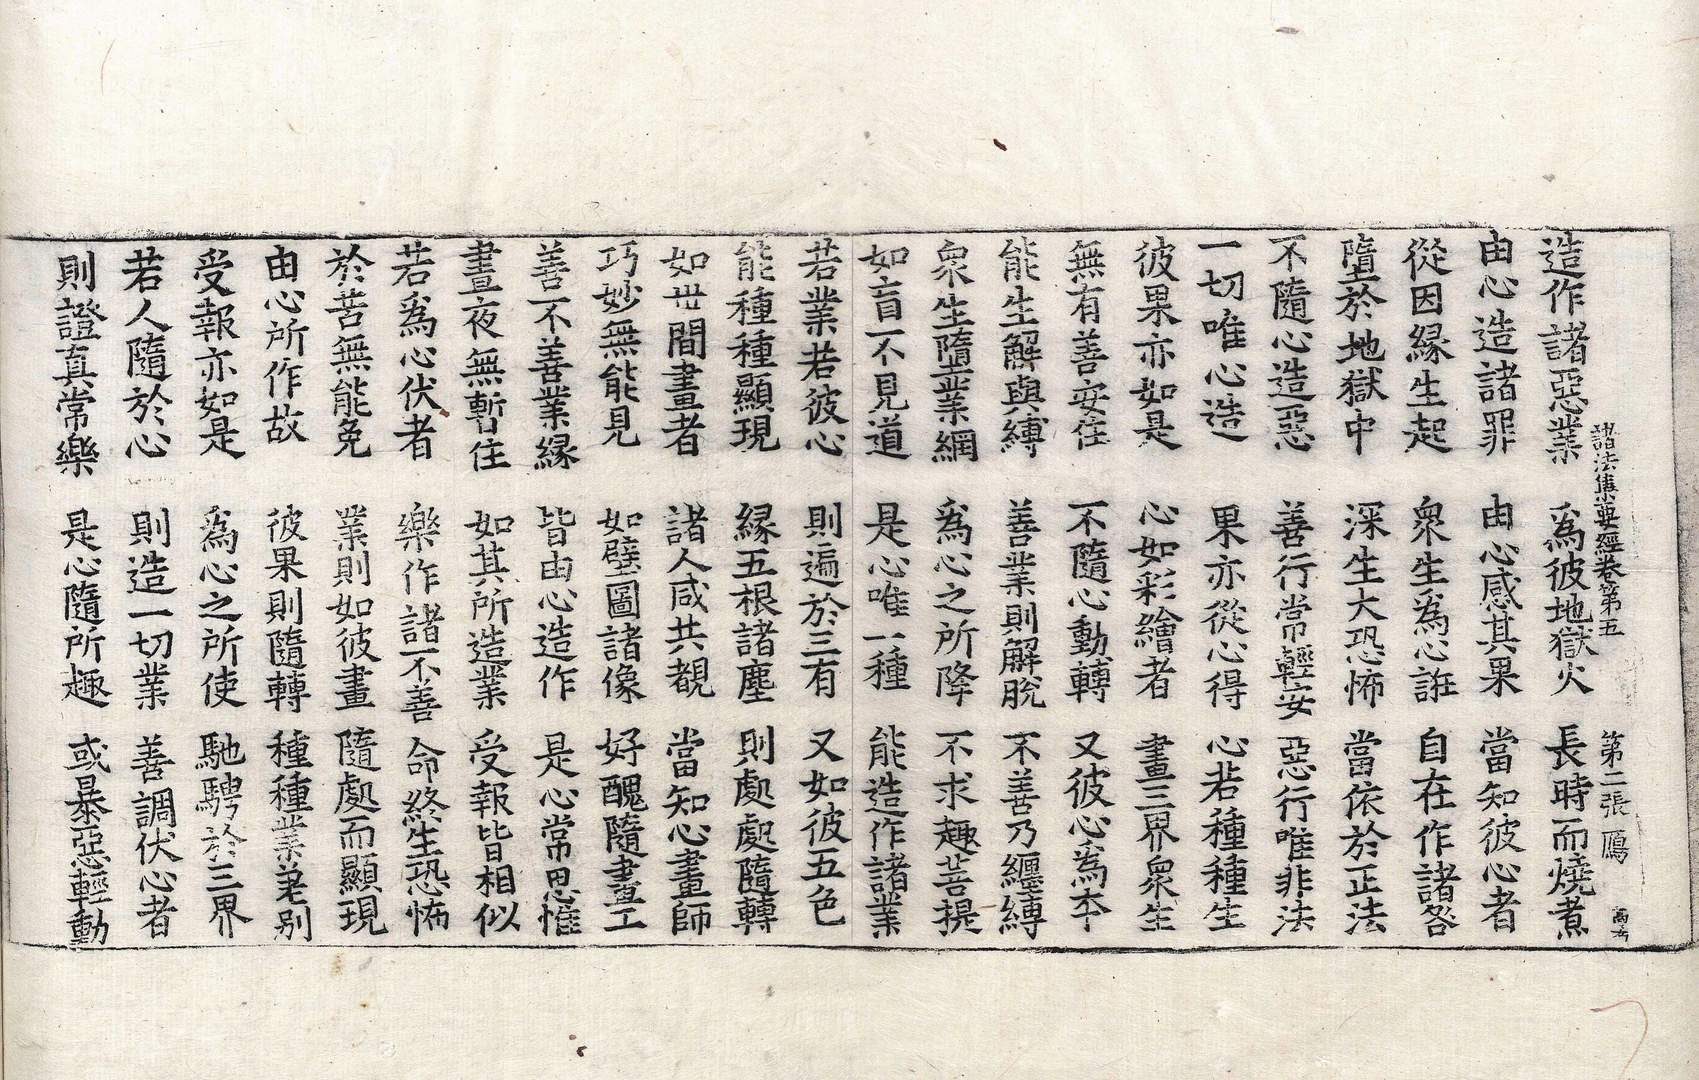 諸法集要經卷第五 第二張 鴈
造作諸惡業 爲彼地獄火 長時而燒煮
由心造諸罪 由心感其果 當知彼心者
從因緣生起 衆生爲心誑 自在作諸咎
墮於地獄中 深生大恐怖 當依於正法
不隨心造惡 善行常輕安 惡行唯非法
一切唯心造 果亦從心得 心若種種生
彼果亦如是 心如彩繪者 畫三界衆生
無有善安住 不隨心動轉 又彼心爲本
能生解與縛 善業則解脫 不善乃纏縛
衆生墮業網 爲心之所降 不求趣菩提
如盲不見道 是心唯一種 能造作諸業
若業若彼心 則遍於三有 又如彼五色
能種種顯現 緣五根諸塵 則處處隨轉
如世間畫者 諸人咸共覩 當知心畫師
巧妙無能見 如壁圖諸像 好醜隨畫工
善不善業緣 皆由心造作 是心常思惟
晝夜無暫住 如其所造業 受報皆相似
若爲心伏者 樂作諸不善 命終生恐怖
於苦無能免 業則如彼畫 隨處而顯現
由心所作故 彼果則隨轉 種種業差別
受報亦如是 爲心之所使 馳騁於三界
若人隨於心 則造一切業 善調伏心者
則證真常樂 是心隨所趣 或暴惡輕動